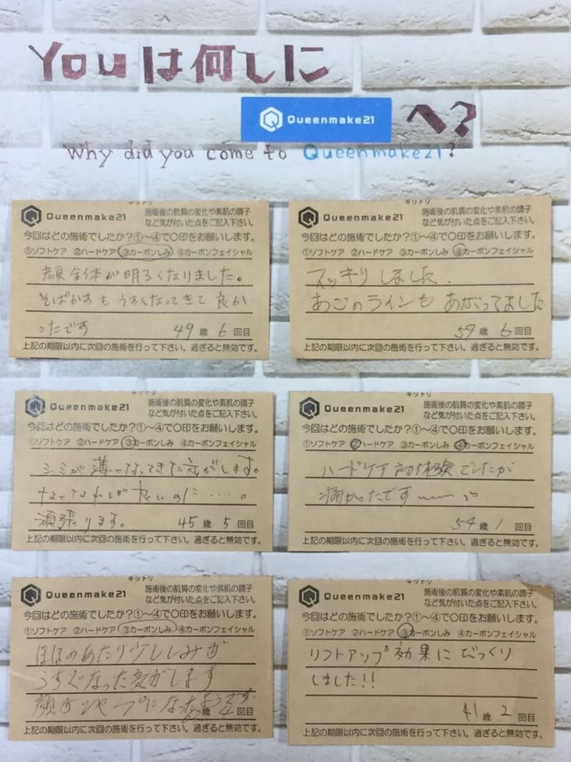 Youは何しに
Queenmake21
へ?
Why did you come to Queenmake21?
キリトリ
Queenmake21
施術後の肌質の変化や素肌の調子
など気が付いた点をご記入下さい。
今回はどの施術でしたか?①~④で〇印をお願いします。
①ソフトケア ②ハードケア ③カーボンしみ ④カーボンフェイシャル
顔全体が明るくなりました。
そばかすもうすくなってきて良か
ったです
49歳 6回目
上記の期限以内に次回の施術を行って下さい。過ぎると無効です。
キリトリ
Queenmake21
施術後の肌質の変化や素肌の調子
など気が付いた点をご記入下さい。
今回はどの施術でしたか?①~④で〇印をお願いします。
①ソフトケア ②ハードケア ③カーボンしみ ④カーボンフェイシャル
スッキリしました.
あごのラインも あがってました
59歳 6回目
上記の期限以内に次回の施術を行って下さい。過ぎると無効です。
キリトリ
Queenmake21
施術後の肌質の変化や素肌の調子
など気が付いた点をご記入下さい。
今回はどの施術でしたか?①~④で〇印をお願いします。
①ソフトケア ②ハードケア ③カーボンしみ ④カーボンフェイシャル
シミが薄くなってきた気がします。
なくなれば良いのに…。
頑張ります。 45歳 5回目
上記の期限以内に次回の施術を行って下さい。過ぎると無効です。
キリトリ
Queenmake21
施術後の肌質の変化や素肌の調子
など気が付いた点をご記入下さい。
今回はどの施術でしたか?①~④で〇印をお願いします。
①ソフトケア ②ハードケア ③カーボンしみ ④カーボンフェイシャル
ハードケア初体験でしたが
痛かったです
54歳 1回目
上記の期限以内に次回の施術を行って下さい。過ぎると無効です。
キリトリ
Queenmake21
施術後の肌質の変化や素肌の調子
など気が付いた点をご記入下さい。
今回はどの施術でしたか?①~④で〇印をお願いします。
①ソフトケア ②ハードケア ③カーボンしみ ④カーボンフェイシャル
ほほのあたり少ししみが
うすくなった気がします
顔がシャープになった
歳 回目
上記の期限以内に次回の施術を行って下さい。過ぎると無効です。
キリトリ
Queenmake21
施術後の肌質の変化や素肌の調子
など気が付いた点をご記入下さい。
今回はどの施術でしたか?①~④で〇印をお願いします。
①ソフトケア ②ハードケア ③カーボンしみ ④カーボンフェイシャル
リフトアップ効果にびっくり
しました!!
41歳 2回目
上記の期限以内に次回の施術を行って下さい。過ぎると無効です。